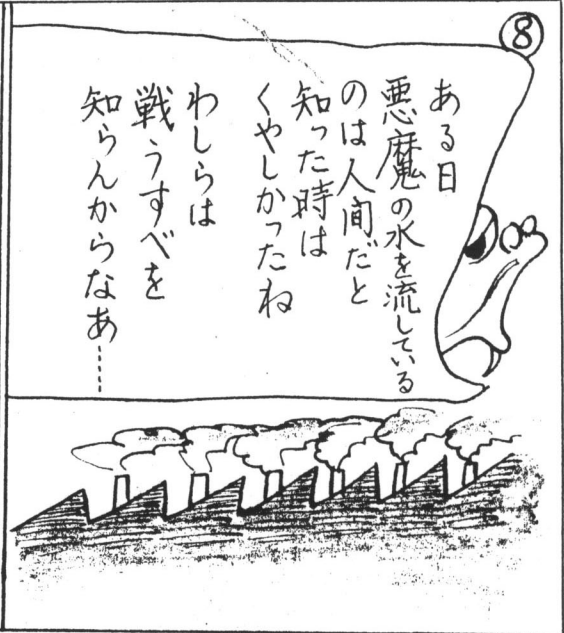 ⑧
ある日
悪魔の水を流している
のは人間だと
知った時は
くやしかったね
わしらは
戦うすべを
知らんからなあ……